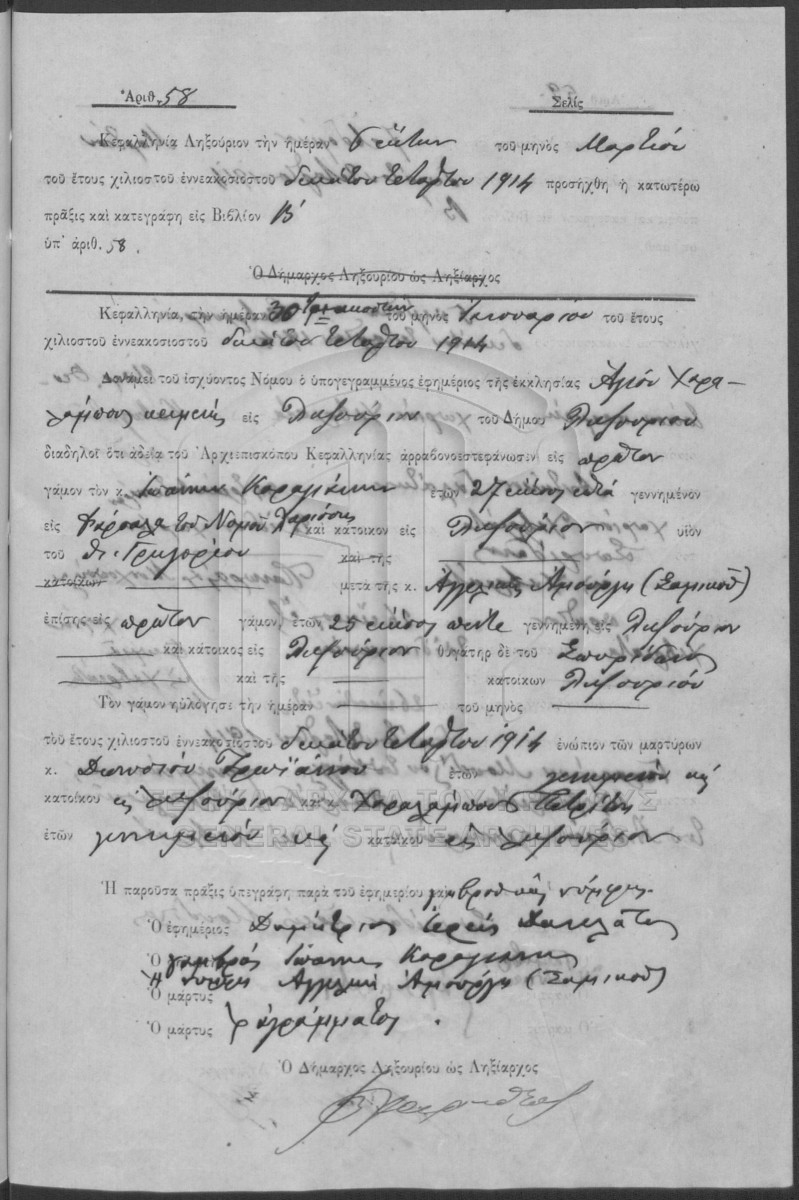 Ἀριθ. 58
Σελὶς
Κεφαλληνία Ληξούριον τὴν ἡμέραν 6 ἕκτην τοῦ μηνὸς Μαρτίου
τοῦ ἔτους χιλιοστοῦ ἐννεακοσιοστοῦ δεκάτου τετάρτου 1914 προσήχθη ἡ κατωτέρω
πρᾶξις καὶ κατεγράφη εἰς Βιβλίον Β′
ὑπ᾽ ἀριθ. 58.
Ὁ Δήμαρχος Ληξουρίου ὡς Ληξίαρχος
Κεφαλληνία, τὴν ἡμέραν 30 τριακοστὴν τοῦ μηνὸς Ἰανουαρίου τοῦ ἔτους
χιλιοστοῦ ἐννεακοσιοστοῦ δεκάτου τετάρτου 1914
Δυνάμει τοῦ ἰσχύοντος Νόμου ὁ ὑπογεγραμμένος ἐφημέριος τῆς ἐκκλησίας Ἁγίου Χαρα-
λάμπους κειμένης εἰς Ληξούριον τοῦ Δήμου Ληξουρίου
διαδηλοῖ ὅτι ἀδείᾳ τοῦ Ἀρχιεπισκόπου Κεφαλληνίας ἀρραβονοεστεφάνωσεν εἰς πρῶτον
γάμον τὸν κ. Ἰωάννην Καραγιάννην ἐτῶν 27 εἴκοσι ἑπτὰ γεννημένον
εἰς Φάρσαλα τοῦ Νομοῦ Λαρίσσης καὶ κάτοικον εἰς Ληξούριον υἱὸν
τοῦ π. Γρηγορίου καὶ τῆς
κατοίκων μετὰ τῆς κ. Ἀγγελικῆς Ἀμούργη (Σαμικοῦ)
ἐπίσης εἰς πρῶτον γάμον, ἐτῶν 25 εἴκοσι πέντε γεννημένη εἰς Ληξούριον
καὶ κάτοικος εἰς Ληξούριον θυγάτηρ δὲ τοῦ Σπυρίδωνος
καὶ τῆς κατοίκων Ληξουρίου
Τὸν γάμον ηὐλόγησε τὴν ἡμέραν τοῦ μηνὸς
τοῦ ἔτους χιλιοστοῦ ἐννεακοσιοστοῦ δεκάτου τετάρτου 1914 ἐνώπιον τῶν μαρτύρων
κ. Διονυσίου ἐτῶν γεννημένου καὶ
κατοίκου εἰς Ληξούριον καὶ κ. Χαραλάμπους Πετρίτη
ἐτῶν γεννημένου καὶ κατοίκου εἰς Ληξούριον
ΓΕΝΙΚΑ ΑΡΧΕΙΑ ΤΟΥ ΚΡΑΤΟΥΣ
GENERAL STATE ARCHIVES
Ἡ παροῦσα πρᾶξις ὑπεγράφη παρὰ τοῦ ἐφημερίου γαμβροῦ καὶ νύμφης.
Ὁ ἐφημέριος Δημήτριος ἱερεὺς Δανελάτος
Ὁ γαμβρός Ἰωάννης Καραγιάννης
Ἡ νύμφη Ἀγγελικὴ Ἀμούργη (Σαμικοῦ)
Ὁ μάρτυς
Ὁ μάρτυς ἀγράμματος.
Ὁ Δήμαρχος Ληξουρίου ὡς Ληξίαρχος